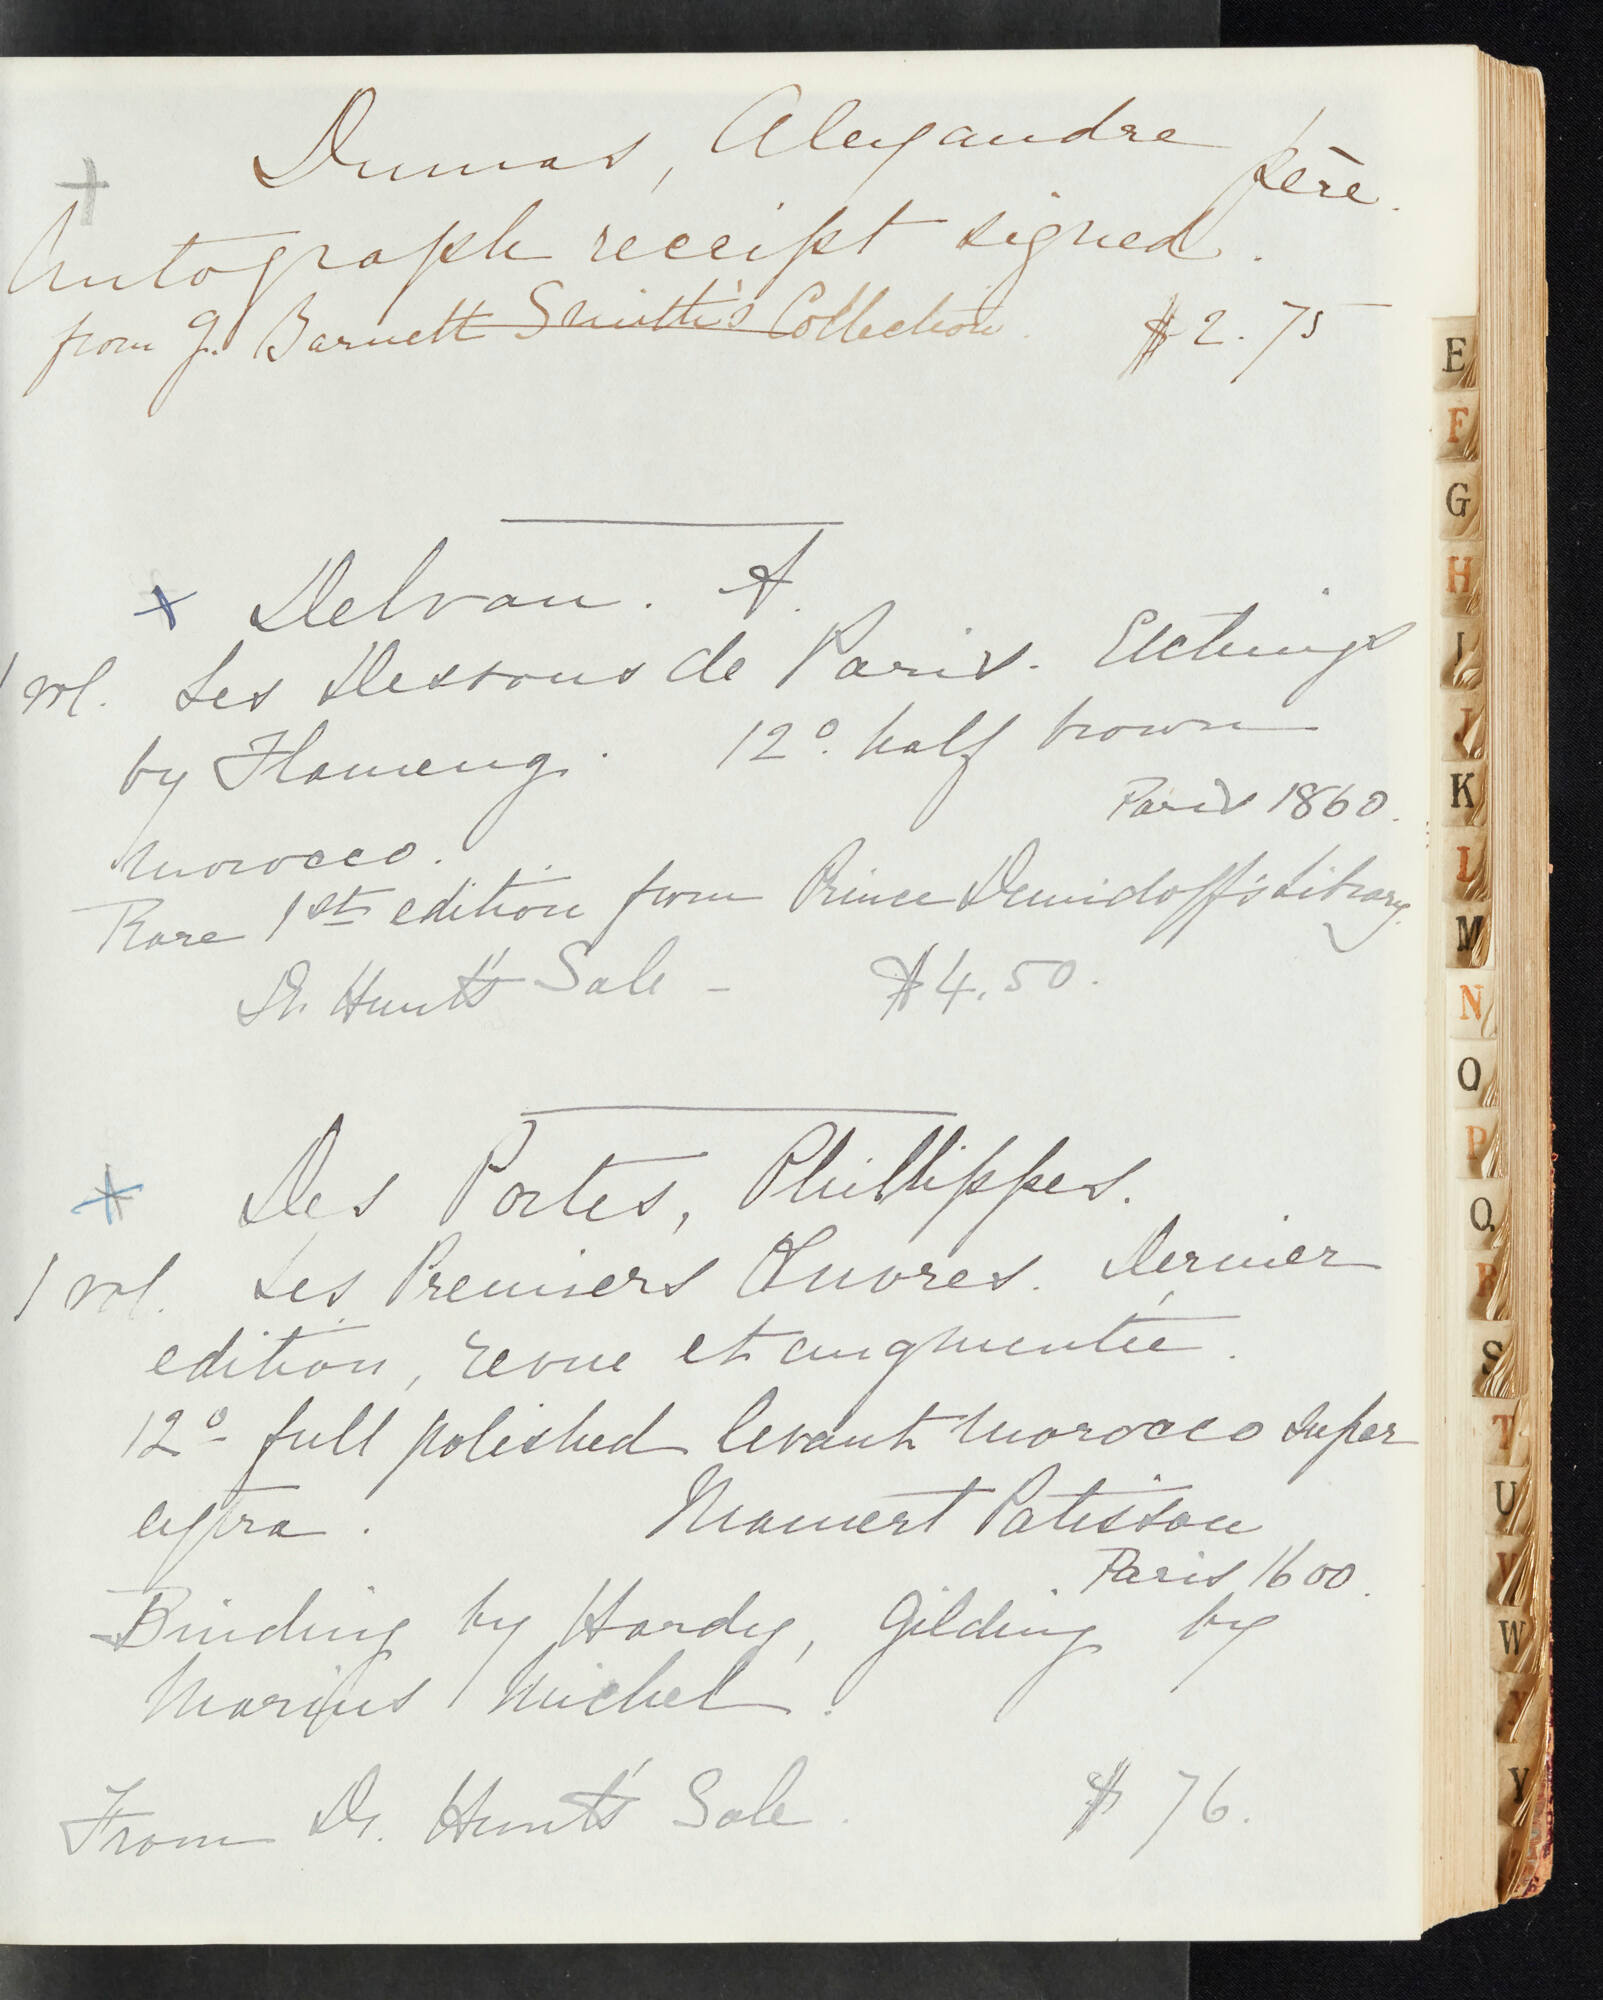 Dumas, Alexandre père.
Autograph receipt signed.
from G. Barnett Smith's Collection. $2.75
Delvau. A.
1 vol. Les Dessous de Paris. Etchings
by Flameng. 12o. half brown
Paris 1860.
morocco.
Rare 1st edition from Prince Demidoff's Library.
Dr. Hunt's Sale - $4.50.
Des Portes, Phillippes.
1 vol. Les Premiers Œuvres. Dernier
edition, revue et augmentée.
12o full polished levant morocco super
extra. Mamert Patisson
Paris 1600.
Binding by Hardy, Gilding by
Marius Michel.
From Dr. Hunt's Sale. $76.
E
F
G
H
I
J
K
L
M
N
O
P
Q
R
S
T
U
V
W
X
Y